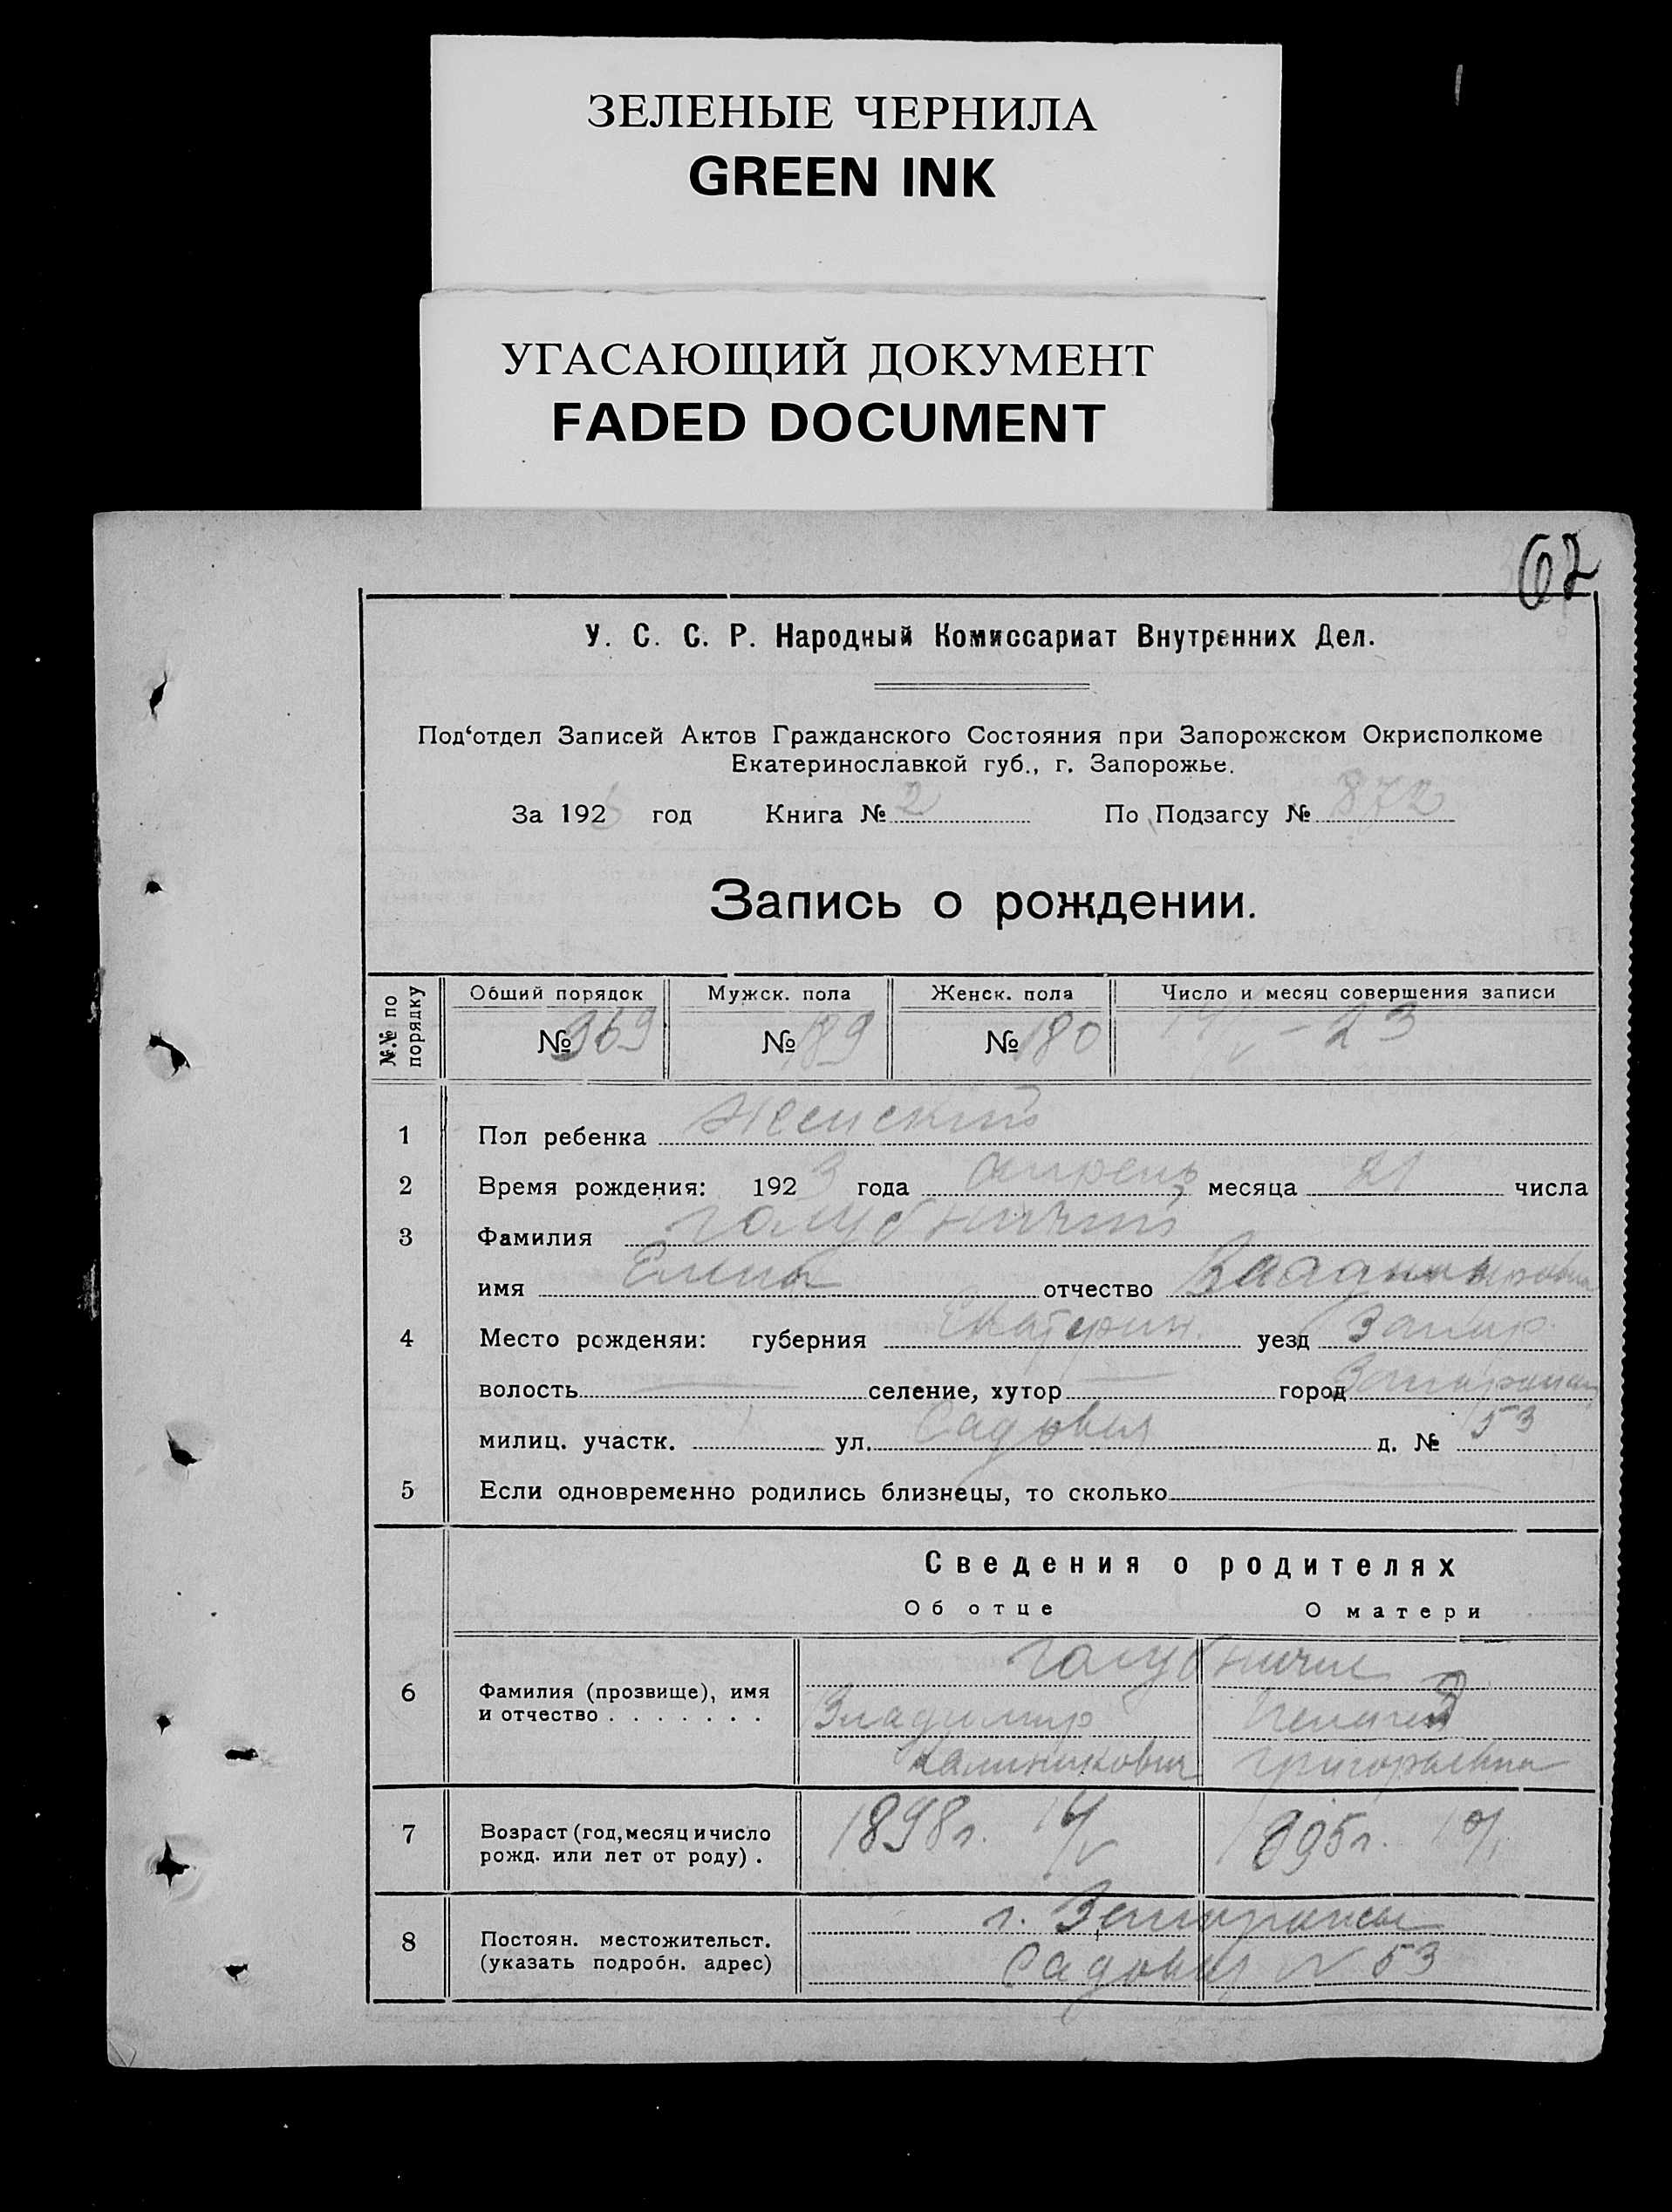 ЗЕЛЕНЫЕ ЧЕРНИЛА
GREEN INK
УГАСАЮЩИЙ ДОКУМЕНТ
FADED DOCUMENT
62
У. С. С. Р. Народный Комиссариат Внутренних Дел.
Под‘отдел Записей Актов Гражданского Состояния при Запорожском Окрисполкоме
Екатеринославкой губ., г. Запорожье.
За 1923 год Книга № 2 По Подзагсу № 872
Запись о рождении.
№.№ по порядку Общий порядок Мужск. пола Женск. пола Число и месяц совершения записи
№ 369 № 189 № 180 14/V – 23
1 Пол ребенка женский
2 Время рождения: 1923 года апрель месяца 21 числа
3 Фамилия Голубничий
имя Елена отчество Владимировна
4 Место рожденяи: губерния Екатерин. уезд Запор.
волость селение, хутор город Запорожье
милиц. участк. ул. Садовая д. № 53
5 Если одновременно родились близнецы, то сколько
Сведения о родителях
Об отце О матери
Голубничие
6 Фамилия (прозвище), имя
и отчество . . . . . . .
Владимир
Калиникович Григорьевна
7 Возраст (год, месяц и число
рожд. или лет от роду) .
1898 г. 14/V 1895 г.
8 Постоян. местожительст.
(указать подробн. адрес)
г. Запорожье
Садовая № 53